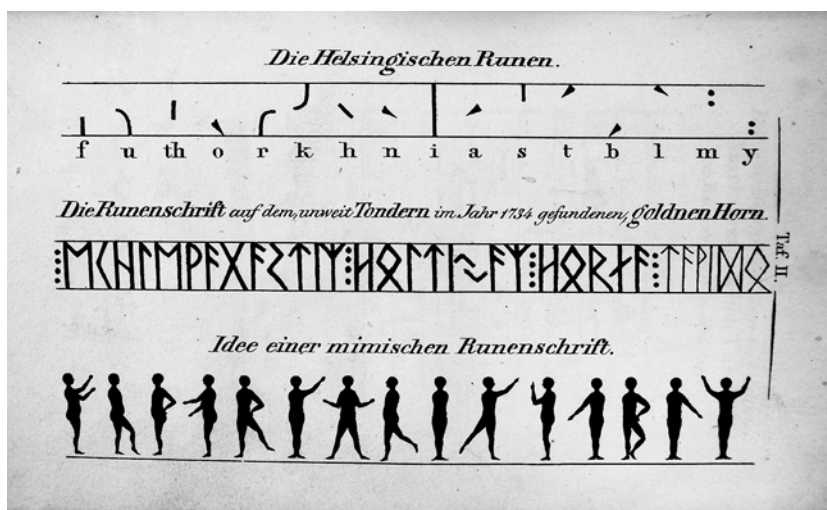 Die Helsingischen Runen.
f u th o r k h n i a s t b l m y
Die Runenschrift auf dem, unweit Tondern im Jahr 1734 gefundenen, goldnen Horn.
⁞ᛖᚲᚺᛚᛖᚹᚨᚷᚨᛊᛏᛁᛉ⁞ᚺᛟᛚᛏᛁᛃᚨᛉ⁞ᚺᛟᚱᚾᚨ⁞ᛏᚨᚹᛁᛞᛟ
Taf. II.
Idee einer mimischen Runenschrift.